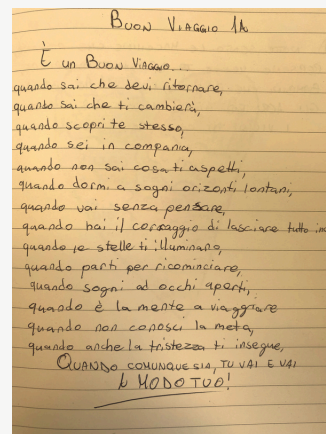 BUON VIAGGIO 1A
È UN BUON VIAGGIO...
quando sai che devi ritornare,
quando sai che ti cambierà,
quando scopri te stesso,
quando sei in compania,
quando non sai cosa ti aspetti,
quando dormi a sogni orizonti lontani,
quando vai senza pensare,
quando hai il coraggio di lasciare tutto
quando le stelle ti illuminano,
quando parti per ricominciare,
quando sogni ad occhi aperti,
quando è la mente a viaggiare
quando non conosci la meta,
quando anche la tristezza ti insegue,
QUANDO COMUNQUE SIA, TU VAI E VAI
A MODO TUO!